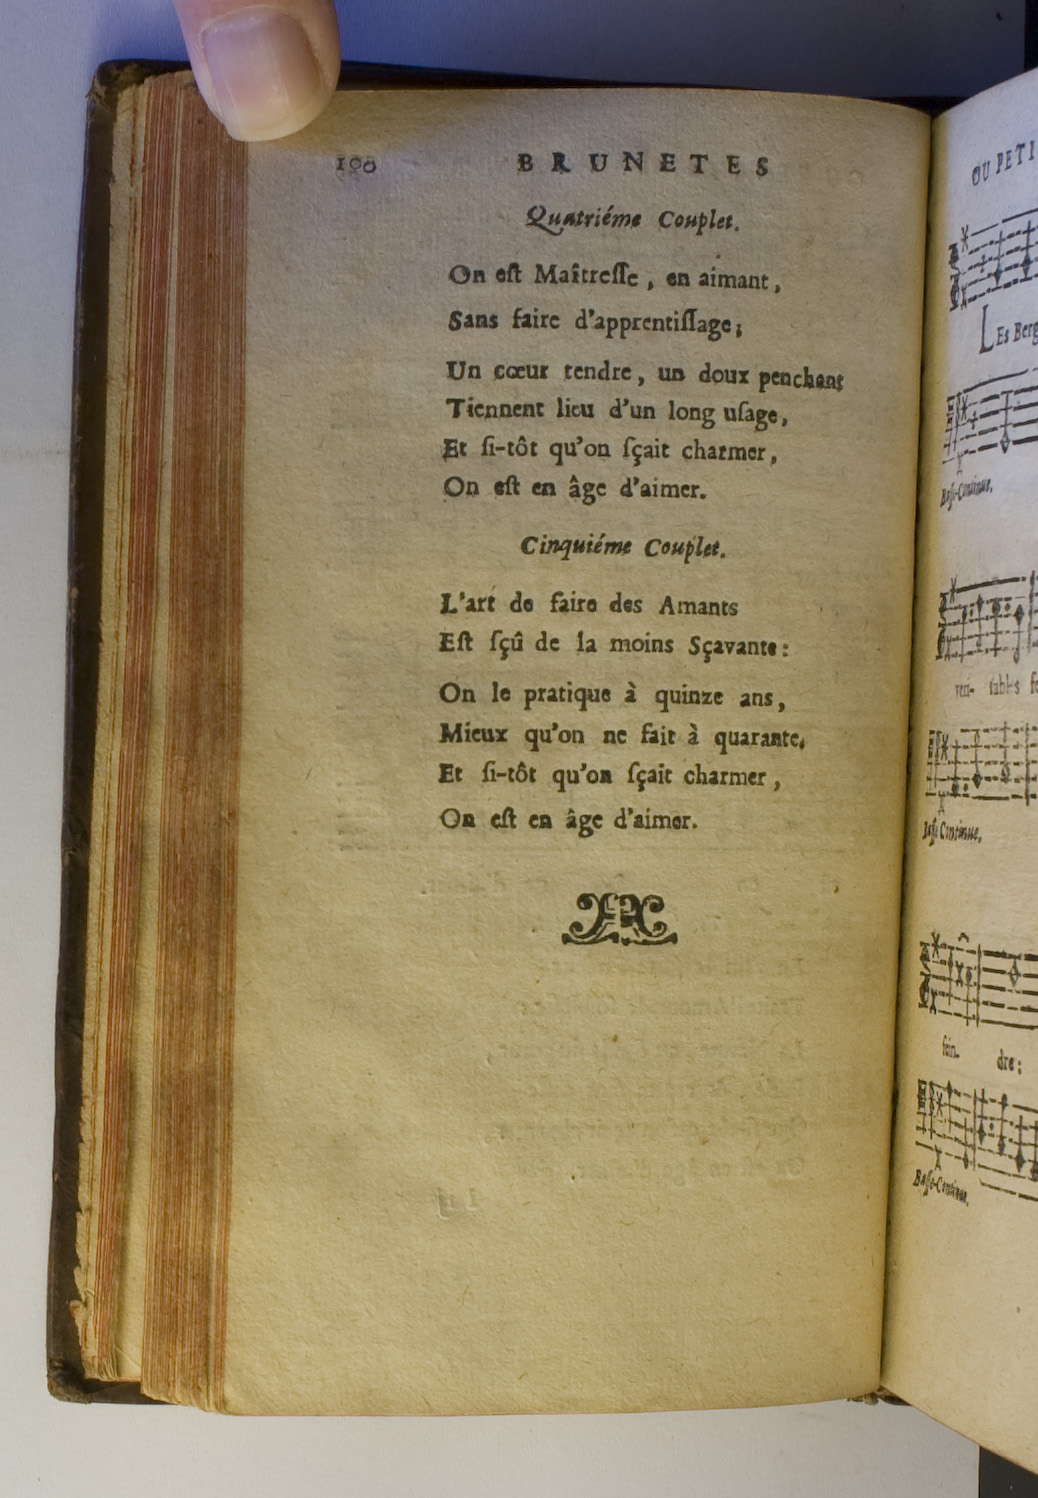 100 BRUNETES
Quatriéme Couplet.
On eſt Maîtreſſe, en aimant,
Sans faire d'apprentiſſage;
Un cœur tendre, un doux penchant
Tiennent lieu d'un long uſage,
Et ſi-tôt qu'on ſçait charmer,
On eſt en âge d'aimer.
Cinquiéme Couplet.
L'art de faire des Amants
Eſt ſçû de la moins Sçavante:
On le pratique à quinze ans,
Mieux qu'on ne fait à quarante.
Et ſi-tôt qu'on ſçait charmer,
On eſt en âge d'aimer.
OU PETI
LEs Berg
Baſſe-Continue.
veri- tables
Baſſe-Continue.
fein- dre;
Baſſe-Continue.